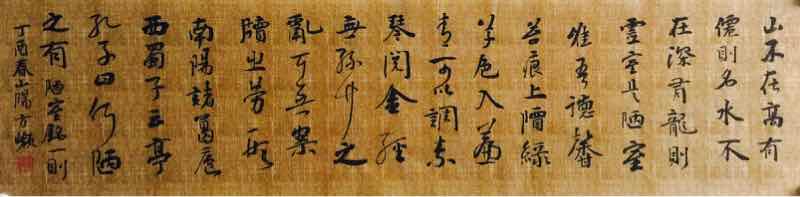 山不在高有
僊則名水不
在深有龍則
靈室是陋室
惟吾德馨
苔痕上階綠
草色入簾
青可以調素
琴閱金經
無絲竹之
亂耳無案
牘之勞形
南陽諸葛廬
西蜀子云亭
孔子曰何陋
之有 陋室銘一則
丁酉春山陽方